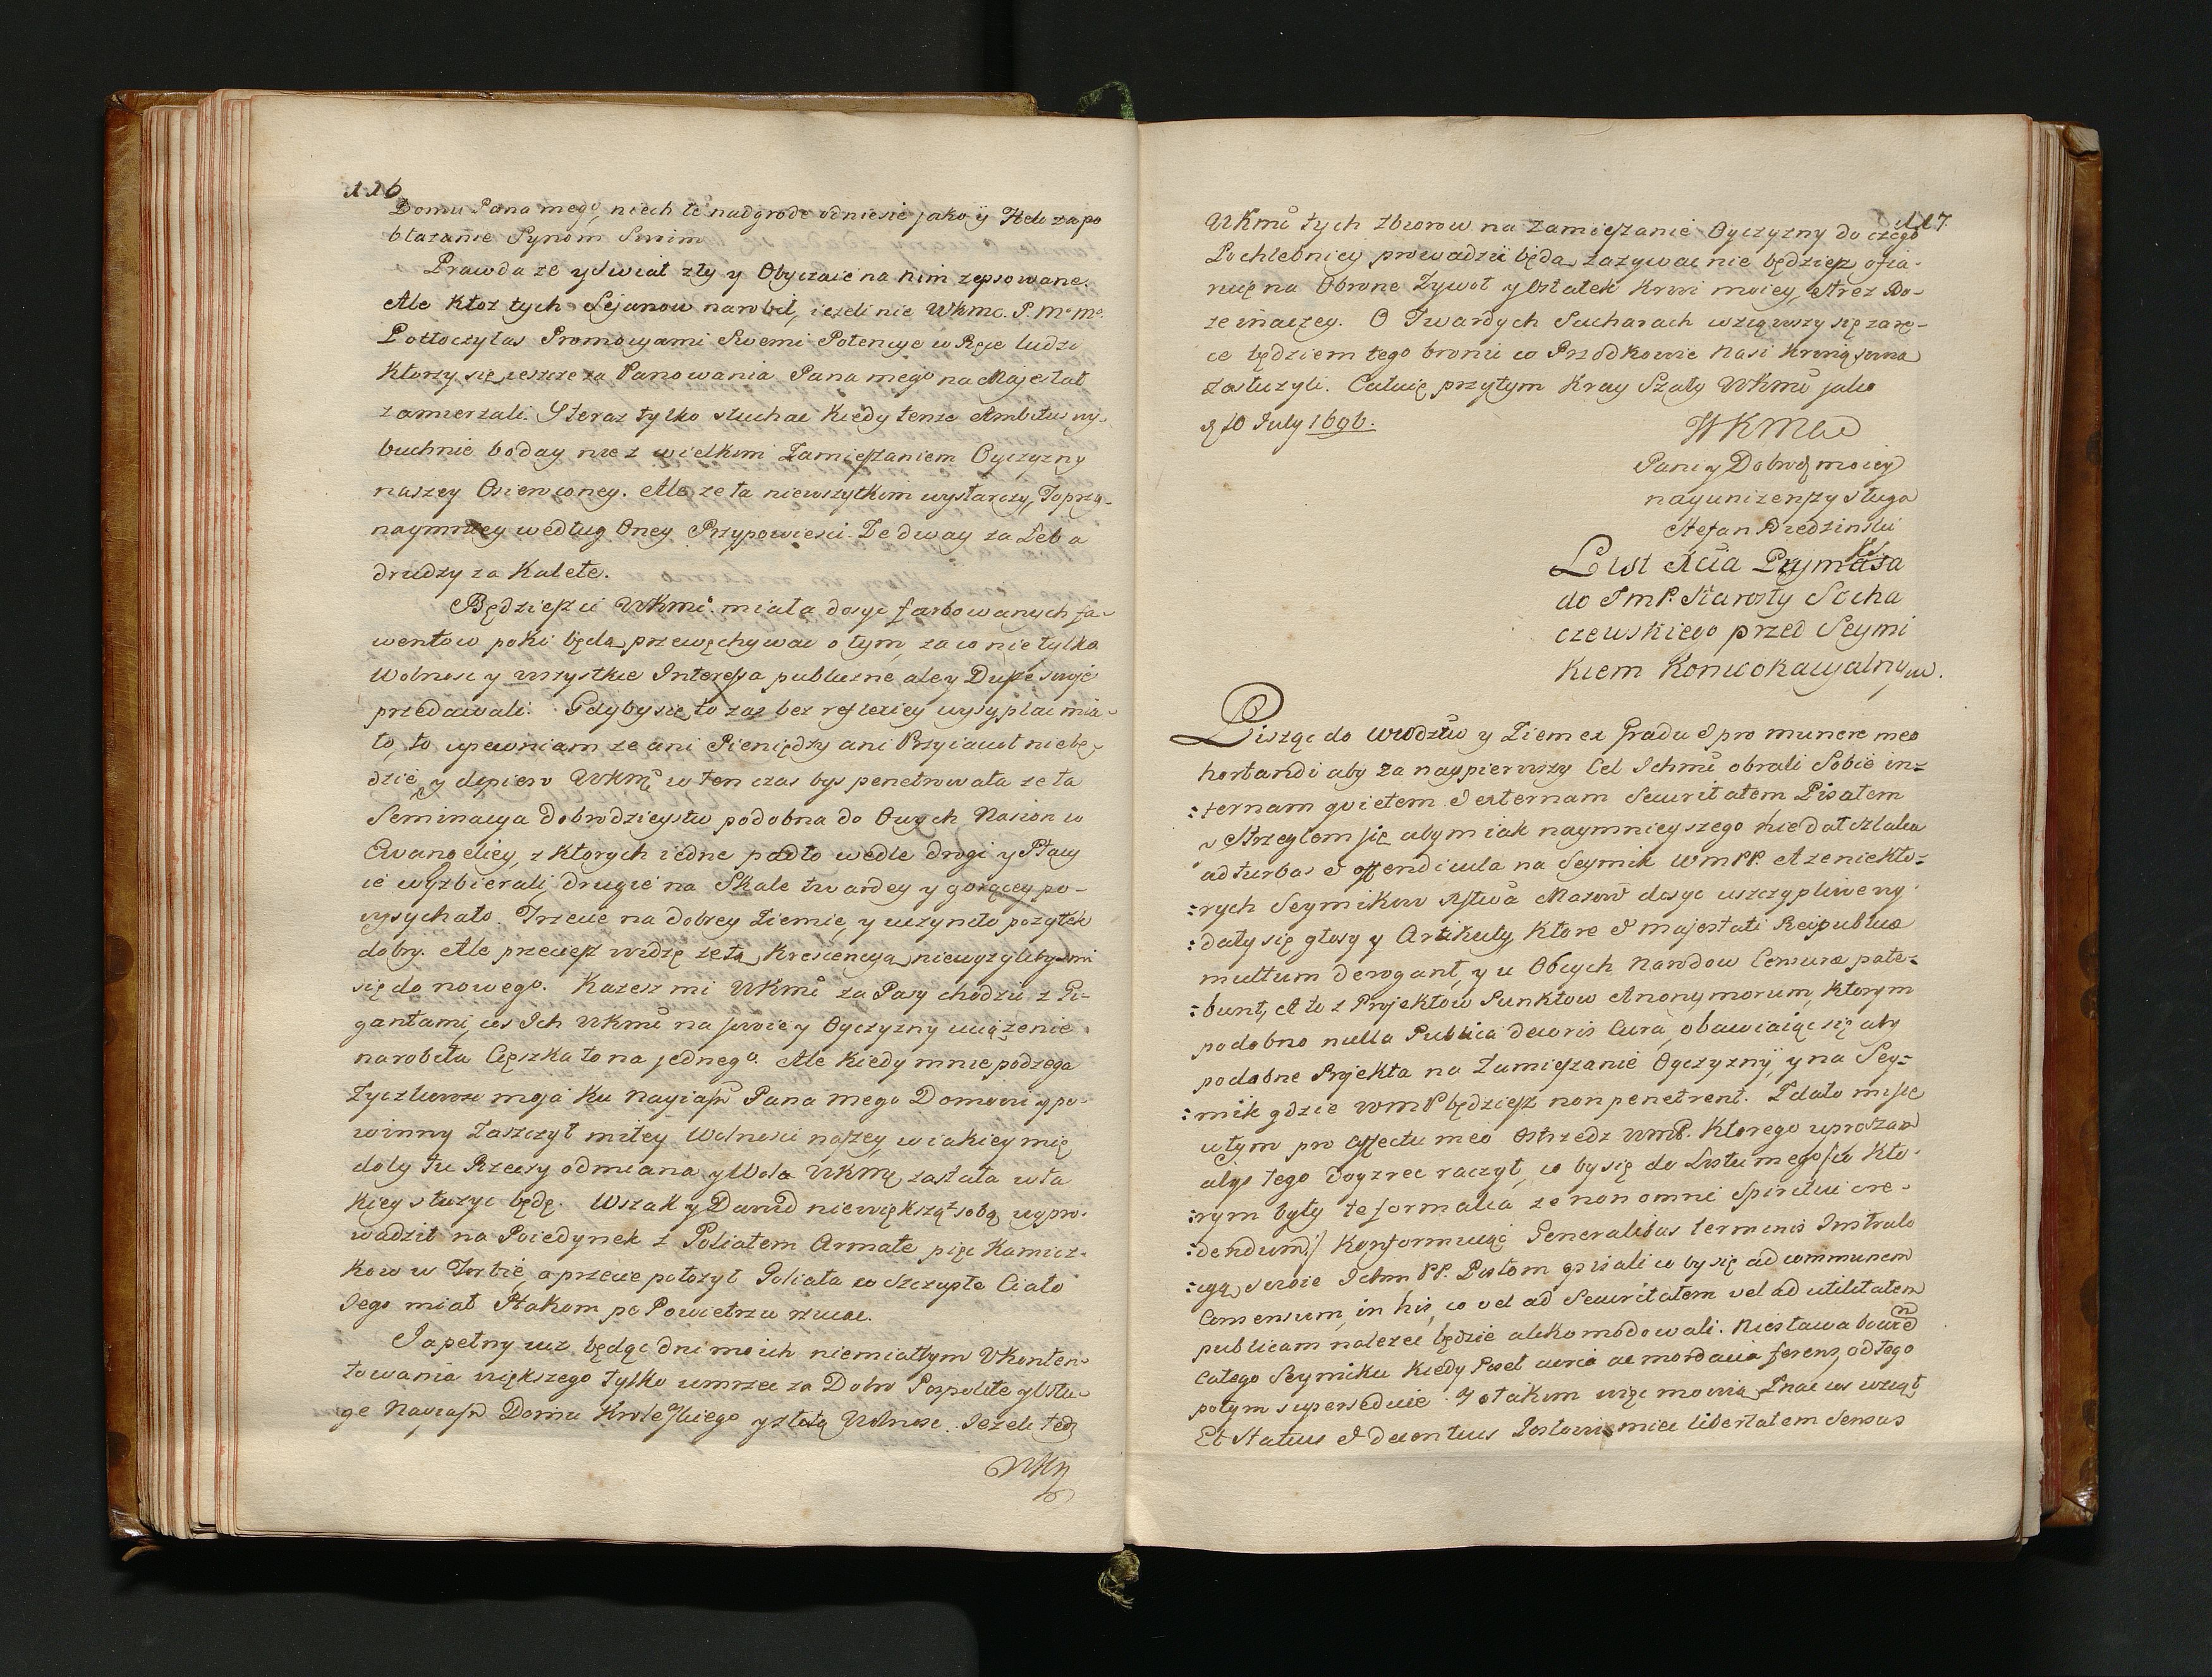 116
Domu Pana mego, niech te nadgrode odniesie jako ÿ Heli za po
błażanie Synom Swoim
Prawda ze y Swiat zły y Obyczaie na nim zepsowane.
Ale ktoz tych Sejanow narobił, iezeli nie WKmc. P. M. Ma.
Potłoczyłas Promocyami Swemi Potencye w Ręce ludzi
ktorzy się ieszcze za Panowania Pana mego na Majestat
zamierzali. I teraz tylko słuchac kiedy tenze Ambitus wy-
buchnie boday nie z wielkim Zamięszaniem Oyczyzny
naszey Osierociałey. Ale ze ta niewszytkim wystarczy, To przy-
naymniey według Oney Przypowiesci Ze dway za Łeb a
drudzy za Kaletę.
Będziesz ci WKmć miała dosyc farbowanych fa-
wentow poki będą przewęchywac o tym, za co nie tylko
Wolnosc y wszystkie Interessa publiczne, ale y Duszę swoje
przedawali. Gdyby się to zas bez reflexiey wysypłac mia-
ło, to upewniam ze ani Pieniędzy ani Przyiaciół niebę-
dzie, y dopiero WKmć w ten czas bys penetrowała ze ta
Seminacya Dobrodzieystw podobna do Owych Nasion w
Ewangeliey, z ktorych iedne padło wedle drogi y Ptacy
ie wyzbierali, drugie na Skale twardey y gorącey po-
wysychało. Trzecie na dobrey Ziemie, y uczyniło pozytek
dobry. Ale przeciesz widzę ze tą Krescencyą niewyzylibysmi
się do nowego. Kazesz mi WKmć za Pasy chodzic z Gi-
gantami, cos Ich WKmć na swoie y Oyczyzny uciązenie
narobiła Cięszka to na jednego. Ale kiedy mnie podzega
Zyczliwosc moja ku Nayiasn Pana mego Domowi y po-
winny Zaszczyt miłey Wolnosci naszey, w iakiey mię
doby tu Rzeczy odmiana y Wola WKMci zastała w ta
kiey słuzyc będę. Wszak y Dawid niewiększą z sobą wypro-
wadził na Poiedynek z Goliatem Armatę, pięc Kamicz-
kow w Torbie, a przecie połozył Goliata co Szczupłe Ciało
Jego miał Ptakom po Powietrzu rzucac.
Ja pełny iuz będąc dni moich niemiałbym Ukonten-
towania większego tylko umrzec za Dobro Pospolite y Usłu-
gę Nayiasn Domu Krolewskiego y złotą Wolnosc. Jezeli tedy
WKM
117.
WKmć tych zbiorow na zamięszanie Oyczyzny do czego
Pochlebnicy prowadzic będą zazywac nie będziesz ofia-
ruię na Obronę Zywot y Ostatek Krwi moiey, strzez Bo-
ze inaczey. O Twardych Sucharach wziąwszy się za rę-
ce będziem tego bronic co Przodkowie Nasi krwią swoią
zasłuzyli. Całuię przytym Kray Szaty WKmć jako
d 10 July 1696.
WKMci
Paniy Dobrodz moiey
nayunizenszy sługa
Stefan Bredzinski
List Xcia Prymasa
do Jmp. Starosty Socha
czewskiego przed Seymi
kiem Konwokacyalnym.
Piszęc do Wwodztw y Ziem ex Gradu & pro munere meo
hortandi aby za naypierwszy Cel Ichmć obrali Sobie in-
ternam quietem & externam Securitatem Pisałem
y Strzegłem się abym iak naymnieyszego nie dał szlaku
ad turbas & offendicula na Seymik WmPP. A ze niekto-
rych Seymikow Xstwa Mazow dosyc uszczypliwe wy
dały się głosy y Artikuły, ktore & majestati Reipublicæ
multum derogant, y u Obcych Narodow Censuræ pate-
bunt, A to z Projektow Punktow Anonymorum, ktorym
podobno nulla Publica decoris Cura, obawiaiąc się aby
podobne Projekta na Zamięszanie Oyczyzny, y na Sey-
mik gdzie WMP będziesz non penetrent. Zdało mi się
w tym pro affectu meo Ostrzedz WMP. Ktorego upraszam
abys tego Doyzrec raczył, co by się do Listu mego /:w kto-
rym były te formalia, ze non omni Spiritui cre-
dendum:/ konformuiąc Generalibus terminis Instruk
cyą swoie Ichm PP. Posłom opisali co by się ad communem
Consensum, in his, co vel ad Securitatem vel ad utilitatem
publicam nalezec będzie akkomodowali. Niesława bowiem
całego Seymiku kiedy Poseł acria ac mordacia ferens, od tego
potym superseduie. I o takim więc mowią, Znac cos wziął
Et Status & decentius Posłowi miec libertatem Sensus